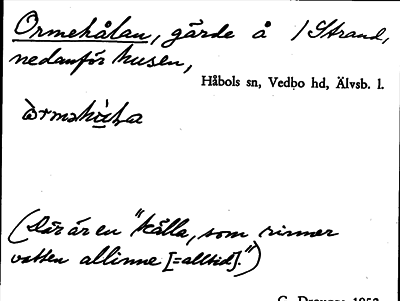 Ormehålan, gärde å 1 Strand,
nedanför husen,
Håbols sn, Vedbo hd, Älvsb. l.
(Där är en "källa, som rinner
vatten allinne [=alltid].")